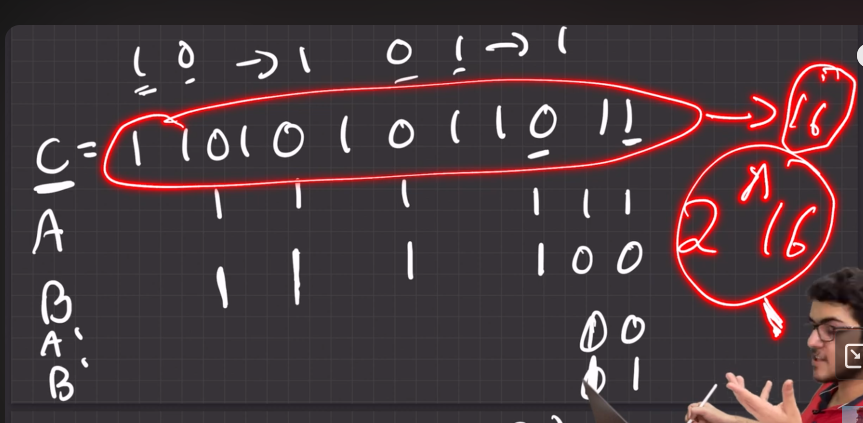 1 0 → 1 0 1 → 1
C = 1 1 0 1 0 1 0 1 1 0 1 1 → 16
A 1 1 1 1 1 1 2 ^ 16
B 1 1 1 1 0 0
A' 0
B' 1